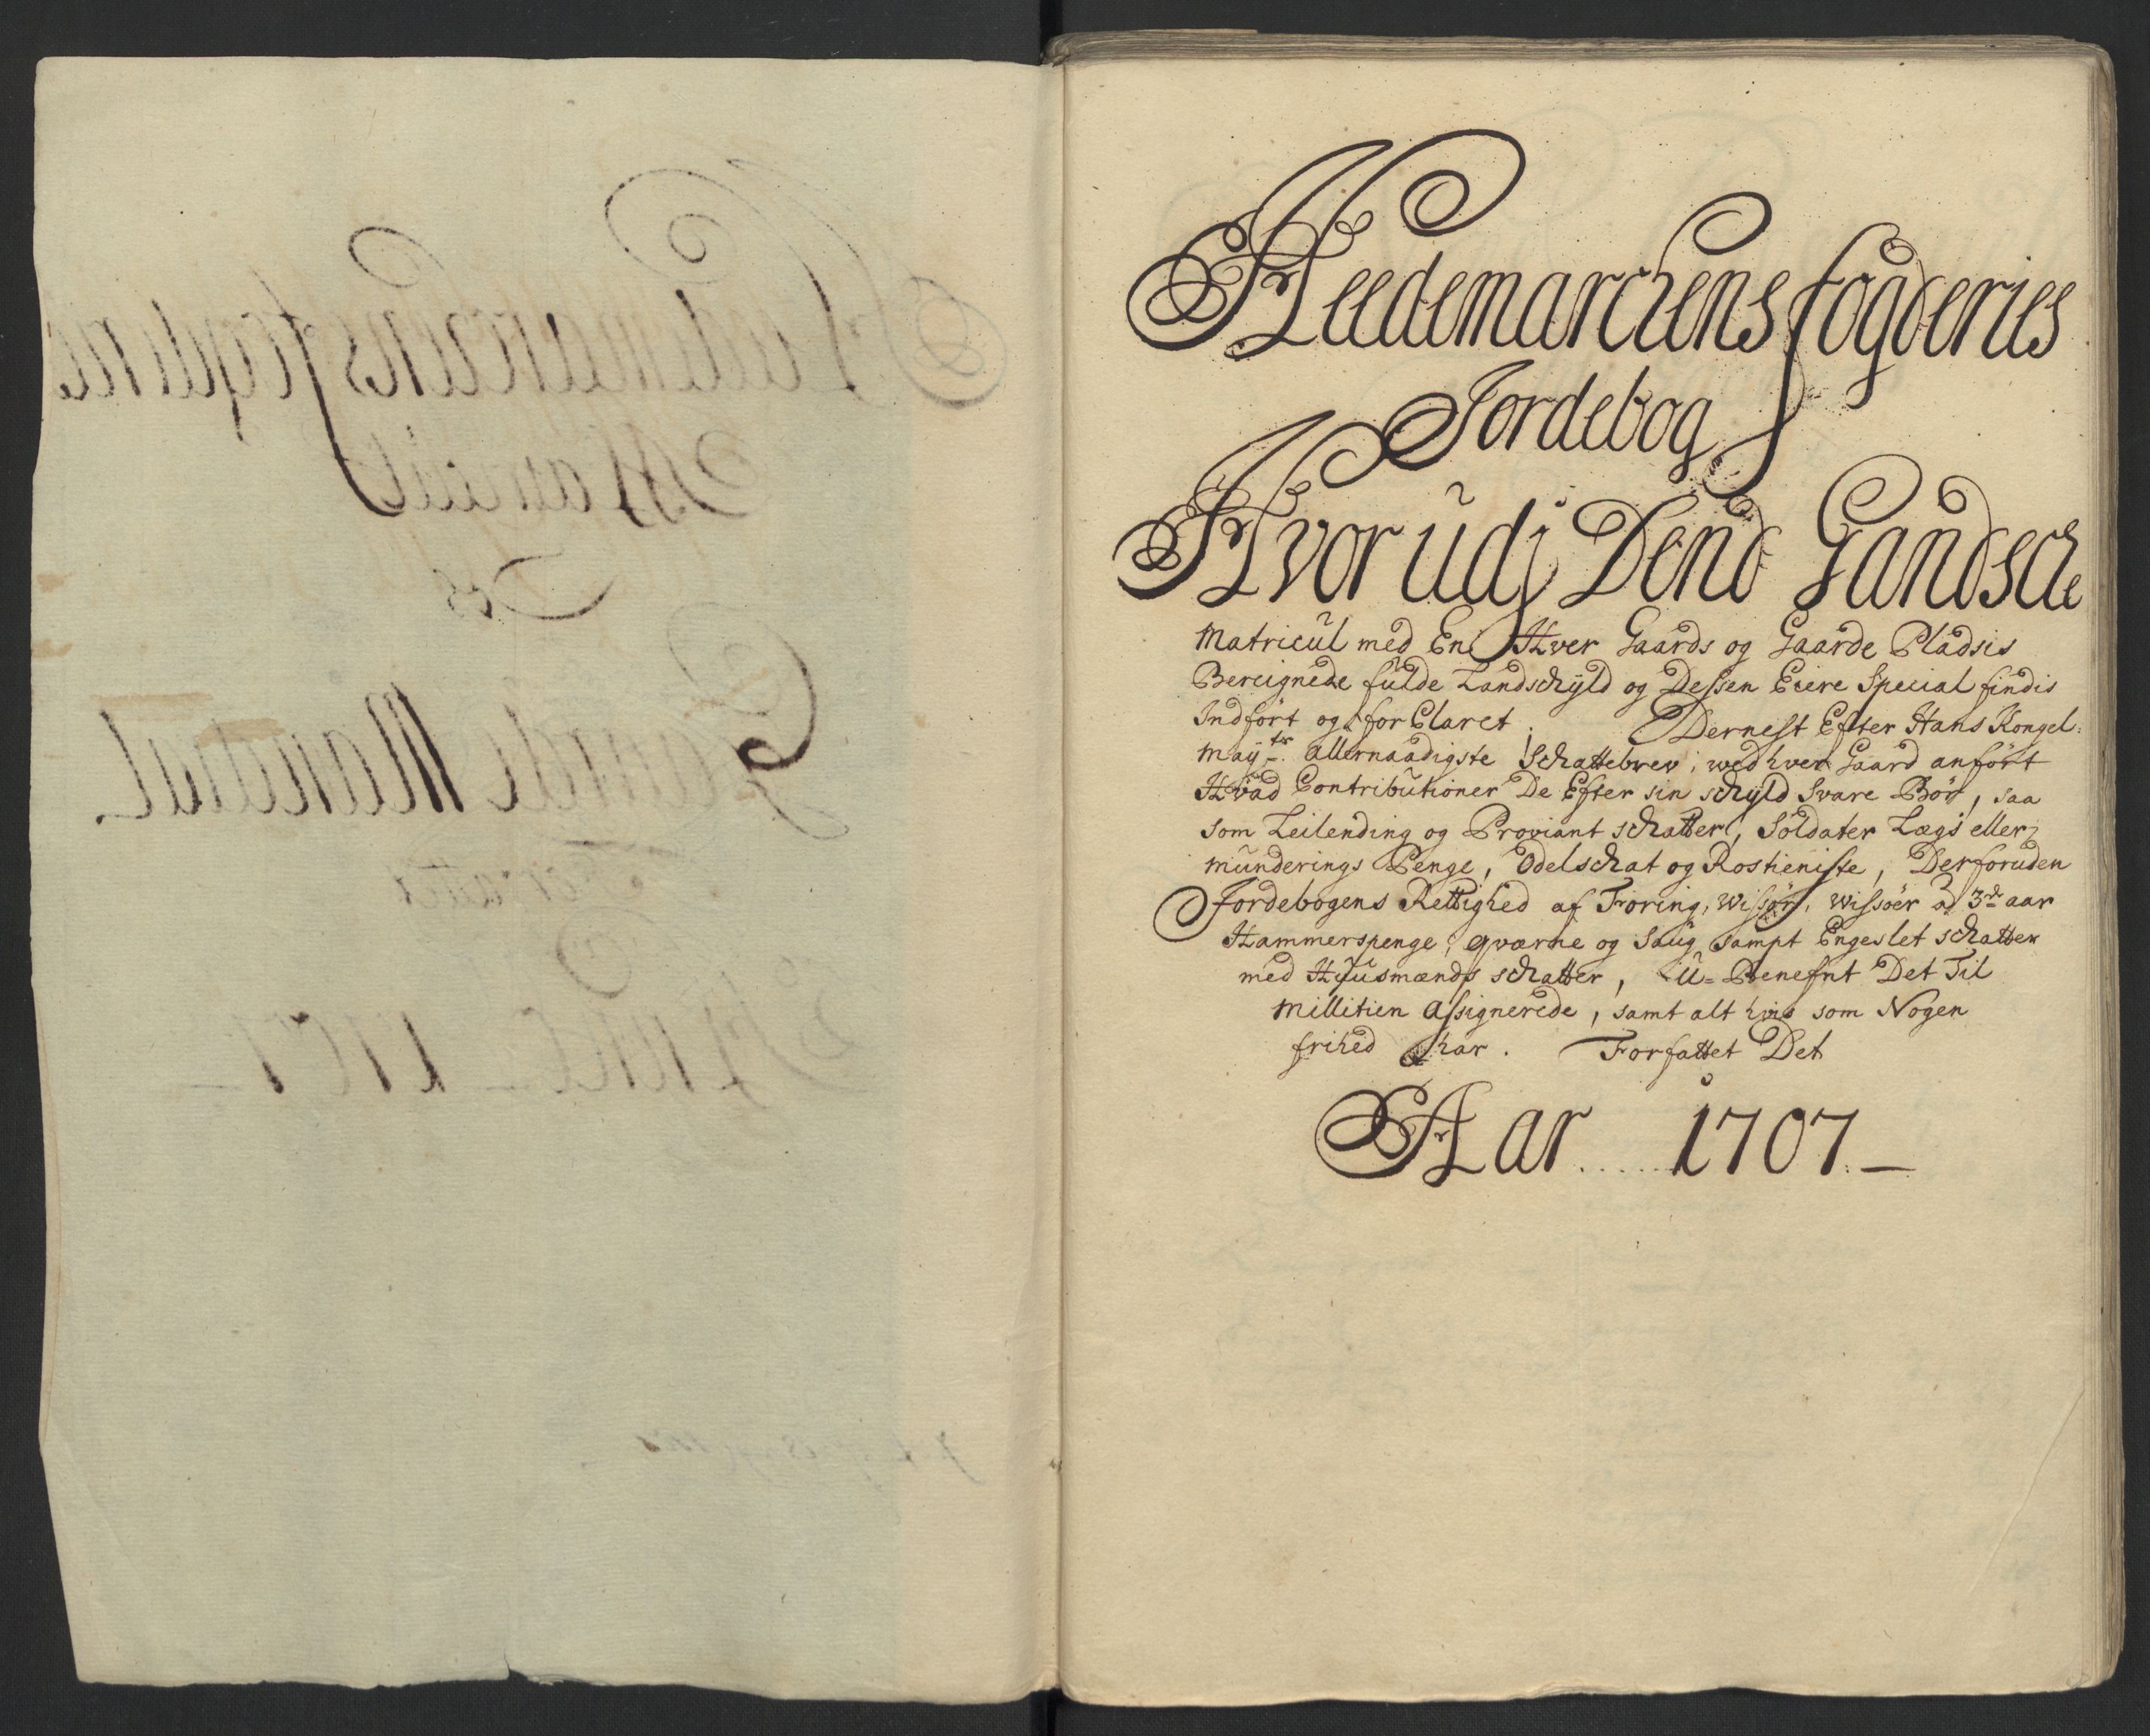 Heedemarchens fogderies
Jordebog
Hvor udj Dend Gandsche
Matricul med En Hver Gaards og Gaarde Pladsis
Bereignede fulde Landschyld og Dessen Eiere Special findis
Indført og forClaret. Dernest Efter Hans Kongel:
May:ts allernaadigste Schattebrev, wed hver Gaard anført
Hvad Contributioner De Efter sin schyld Svare Bør, saa
som Leilending og Proviant schatter, Soldater Lægs eller
munderings Penge, Odelschat og Rostieniste, Derforuden
Jordebogens Rettighed af Foring, Wissør, Wissøer a 3de aar
Hammerspenge, qværne og Saug sampt Engeslet schatter
med Huusmænds schatter, U-Benefnt Det Til
Millitien Assignerede, samt alt hvis som Nogen
frihed har. Forfattet Det
Aar.....1707.—